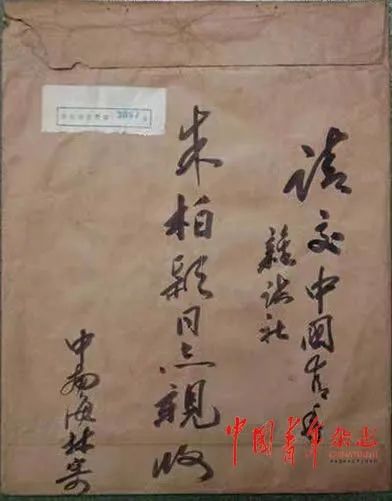 请交中国青年
雜誌社
朱柏颖同志親收
中南海林寄
中国青年杂志